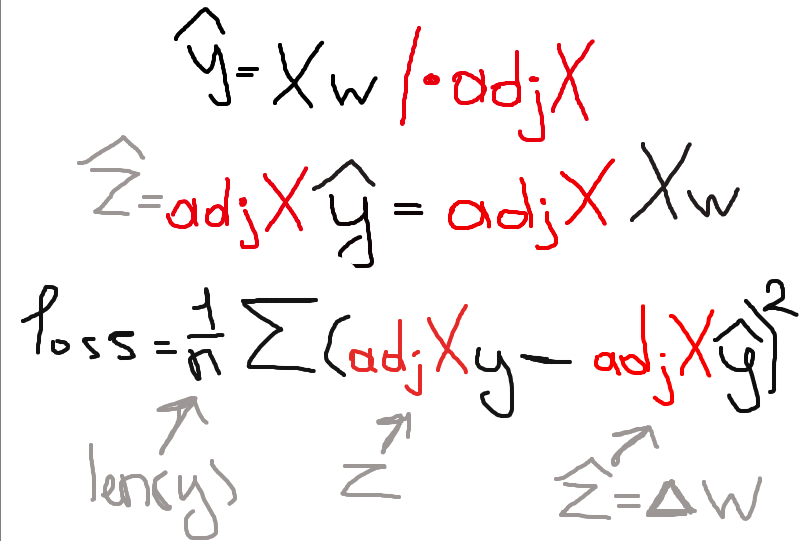 ŷ = Xw / · adjX
ẑ = adjX ŷ = adjX Xw
loss = 1/n Σ(adjXy − adjXŷ)²
len(y) z ẑ = Δw